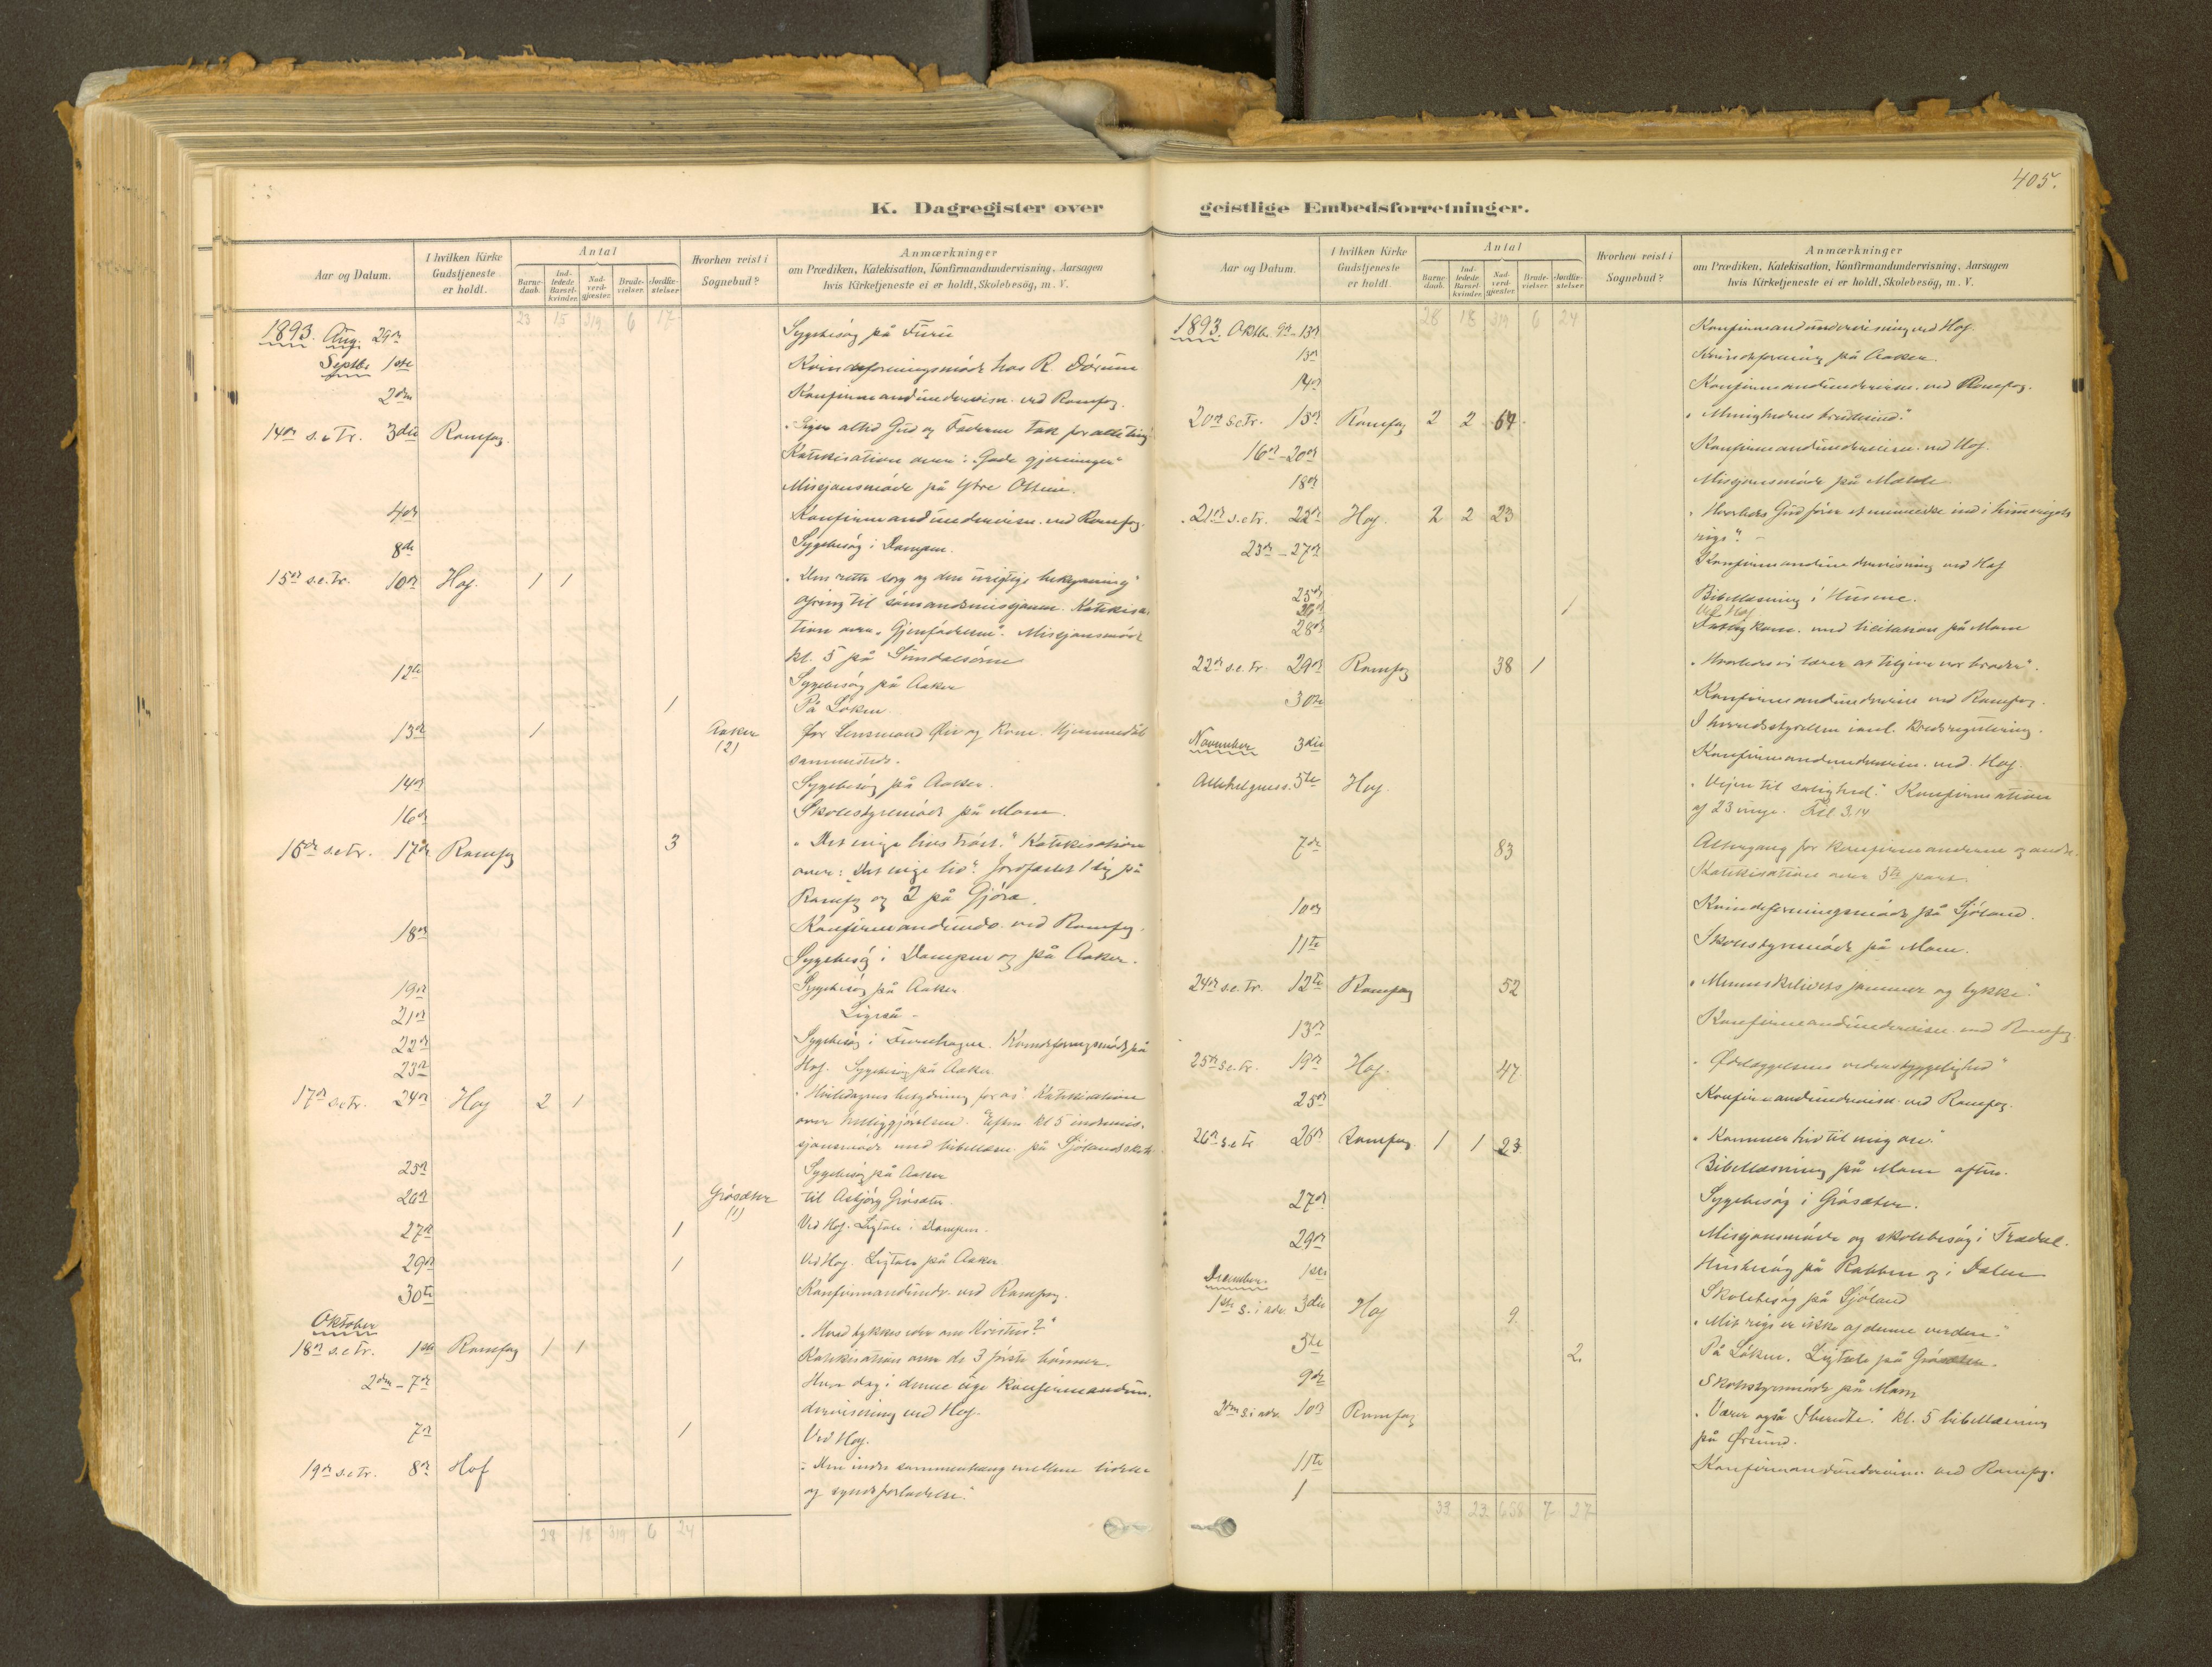 405.
K. Dagregister over
geistlige Embedsforretninger.
Aar og Datum.
I hvilken Kirke Gudstjeneste er holdt.
Antal
Barnedaab.
Indledede Barselkvinder.
Nadverdgjæster.
Brudevielser.
Jordfæstelser
Hvorhen reist i Sognebud?
Anmærkninger
om Prædiken, Katekisation, Konfirmandundervisning, Aarsagen
hvis Kirketjeneste ei er holdt, Skolebesög, m. V.
23 15 319 6 17
1893. Aug. 29de Sygebesög på Furu
Septbr 1ste Kvindeforeningsmöde hos R. Dörum
2den Konfirmandundervisn. ved Romfog.
14de s.e.Tr. 3die Romfog. "Siger altid Gud og Faderen tak for alle ting"
Katekisation over: "Gode gjerninger"
Missjonsmöde på Ytre
4de Konfirmandundervisn. ved Romfog.
8de Sygebesög i
15de s.e.Tr. 10de Hof. 1 1 "Den rette sorg og den urigtige bekymring"
Ofring til sömandsmissjonen. Katekisa-
tion over "Gjenföderen". Missjonsmöde
kl. 5 på Sundalsören
12te Sygebesög på Aaker
1 På Löken
13de 1 Aaker (2) for Lensmand Öie og Kone. Hjemmedåb
sammesteds.
14de Sygebesög på Aaker.
16de Skolestyremöde på Moen.
16de s.e.Tr. 17de Romfog 3 "Det evige livs tröst." Katekisation
over: "Det evige liv". Jordfæstet 1 lig på
Romfog og 2 på Gjöra.
18de Konfirmandundv. ved Romfog.
Sygebesög i og på Aaker.
19de Sygebesög på Aaker.
21de Ligeså -
22de Sygebesög i Kvindeforeningsmöde på
23de Hof. Sygebesög på Aaker.
17de s.e.Tr. 24de Hof 2 1 "Hviledagens betydning for os" Katekisation
over helliggjörelsen. Aften kl 5 indremis-
sjonsmöde med bibellæsn. på Sjölands skole
25de Sygebesög på Aaker
26de Gräsæter (1) til Asbjörg Gräsæter.
27de 1 Ved Hof. Ligtale i
29de 1 Ved Hof. Ligtale på Aaker.
30te Konfirmandundv. ved Romfog.
Oktober
18de s.e.Tr. 1ste Romfog 1 1 "Hvad tykkes eder om Kristus?"
Katekisation over de 3 förste bönner.
2den-7de Hver dag i denne uge konfirmandun-
dervisning ved Hof.
7de 1 Ved Hof.
19de s.e.Tr. 8de Hof "Den indre sammenhæng mellem lidelse
og syndsforladelse."
28 18 319 6 24
Aar og Datum.
I hvilken Kirke Gudstjeneste er holdt.
Antal
Barnedaab.
Indledede Barselkvinder.
Nadverdgjæster.
Brudevielser.
Jordfæstelser
Hvorhen reist i Sognebud?
Anmærkninger
om Prædiken, Katekisation, Konfirmandundervisning, Aarsagen
hvis Kirketjeneste ei er holdt, Skolebesög, m. V.
28 18 319 6 24
1893. Oktbr. 9de-13de Konfirmandundervisning ved Hof.
13de Kvindeforening på Aaker.
14de Konfirmandundervisn. ved Romfog.
20de s.e.Tr. 15de Romfog 2 2 64 "Menighedens brudesind."
16de-20de Konfirmandundervisn. ved Hof.
18de Missjonsmöde på
21de s.e.Tr. 22de Hof. 2 2 23 "Hvorledes Gud förer et menneske ind i himmeriges
rige".
23de-27de Konfirmandundervisning ved Hof
25de Bibellæsning i Husene.
26de 1 Ved Hof.
28de med licitation på Moen
22de s.e.Tr. 29de Romfog 38 1 "Hvorledes vi lærer at tilgive vor broder".
30te Konfirmandundervisn. ved Romfog.
November 3die I herredsstyrelsen kredsregulering.
Konfirmandundervisn. ved Hof.
Allehelgenss. 5te Hof. "Veien til salighed." Konfirmation
af 23 unge. 3.14
7de 83 Altergang for konfirmanderne og andre.
Katekisation over 5te part.
10de Kvindeforeningsmöde på Sjöland.
11te Skolestyremöde på Moen.
24de s.e.Tr. 12te Romfog 52 "Menneskelivets jammer og lykke."
13de Konfirmandundervisn. ved Romfog
25de s.e.Tr. 19de Hof. 47 "Ödelæggelsens vederstyggelighed"
25de Konfirmandundervisn. ved Romfog.
26de s.e.Tr. 26de Romfog 1 1 23 "Kommer hid til mig."
Bibellæsning på Moen aften.
27de Sygebesög i Gräsæter.
29de Missjonsmöde og skolebesög i Trædal.
December 1ste Husbesög på Rabben og i Dalen
Skolebesög på Sjöland
1ste s. i adv. 3die Hof 9 "Mit rige er ikke af denne verden."
5te 2 På Löken. Ligtale på Gräsæter.
9de Skolestyremöde på Moen
2den s. i adv. 10de Romfog "Værer også I beredte." kl. 5 bibellæsning
på Örsund.
11te Konfirmandundervisn. ved Romfog.
1
33 23 658 7 27